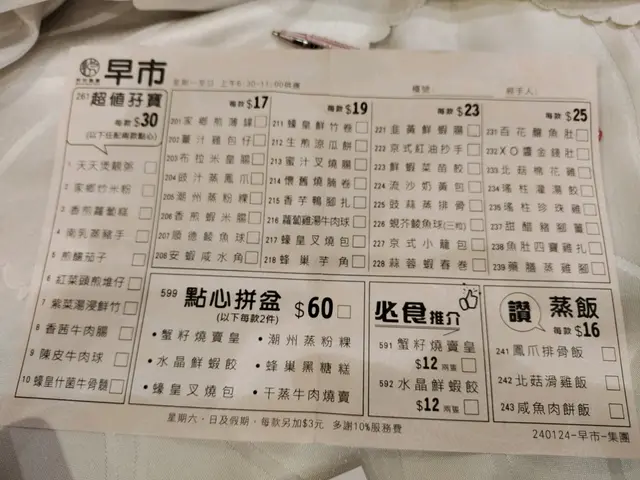 早市
星期一至日 上午6:30-11:00供應
檯號:
經手人:
261 超值孖寶
每款$30
(以下任配兩款點心)
1 天天煲靚粥
2 家鄉炒米粉
3 香煎蘿蔔糕
4 南乳蒸豬手
5 煎釀茄子
6 紅菜頭煎堆仔
7 紫菜湯浸鮮竹
8 香茜牛肉腸
9 陳皮牛肉球
10 蠔皇什菌牛骨髓
每款$17
201 家鄉煎薄罉
202 薑汁雞包仔
203 布拉米皇腸
204 豉汁蒸鳳爪
205 潮州蒸粉粿
206 香煎蝦米腸
207 順德鯪魚球
208 安蝦咸水角
每款$19
211 蠔皇鮮竹卷
212 生煎涼瓜餅
213 蜜汁叉燒腸
214 懷舊燒腩卷
215 香芋鴨腳扎
216 蘿蔔雞湯牛肉球
217 蠔皇叉燒包
218 蜂巢芋角
每款$23
221 韭黃鮮蝦腸
222 京式紅油抄手
223 鮮蝦菜苗餃
224 流沙奶黃包
225 豉蒜蒸排骨
226 蜆芥鯪魚球(三粒)
227 京式小籠包
228 蒜蓉蝦春卷
每款$25
231 百花釀魚肚
232 XO醬金錢肚
233 北菇棉花雞
234 瑤柱灌湯餃
235 瑤柱珍珠雞
237 甜醋豬腳薑
238 魚肚四寶雞扎
239 藥膳蒸雞腳
599 點心拼盆 $60
(以下每款2件)
• 蟹籽燒賣皇 • 潮州蒸粉粿
• 水晶鮮蝦餃 • 蜂巢黑糖糕
• 蠔皇叉燒包 • 干蒸牛肉燒賣
必食推介
591 蟹籽燒賣皇
$12 兩隻
592 水晶鮮蝦餃
$12 兩隻
讚 蒸飯
每款$16
241 鳳爪排骨飯
242 北菇滑雞飯
243 咸魚肉餅飯
星期六、日及假期,每款另加$3元 多謝10%服務費
240124-早市-集團